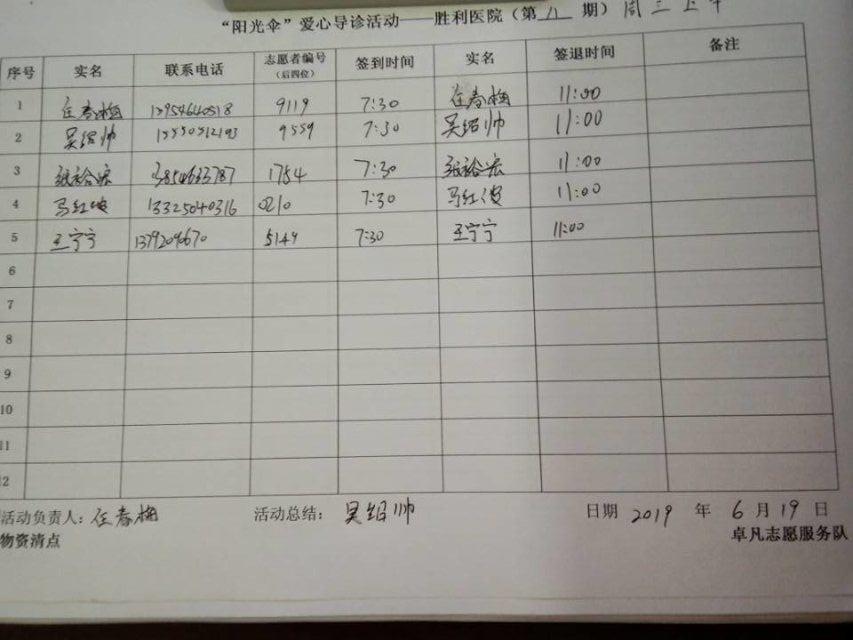 “阳光伞”爱心导诊活动——胜利医院（第 期）周三上午
序号 实名 联系电话 志愿者编号（后四位） 签到时间 实名 签退时间 备注
1 任春梅 9119 7:30 任春梅 11:00
2 吴绍帅 9559 7:30 吴绍帅 11:00
3 1754 7:30 11:00
4 马红俊 13325040316 0210 7:30 马红俊 11:00
5 王宁宁 5149 7:30 王宁宁 11:00
6
7
8
9
10
11
12
活动负责人：任春梅 活动总结：吴绍帅 日期 2019 年 6 月 19 日
物资清点 卓凡志愿服务队